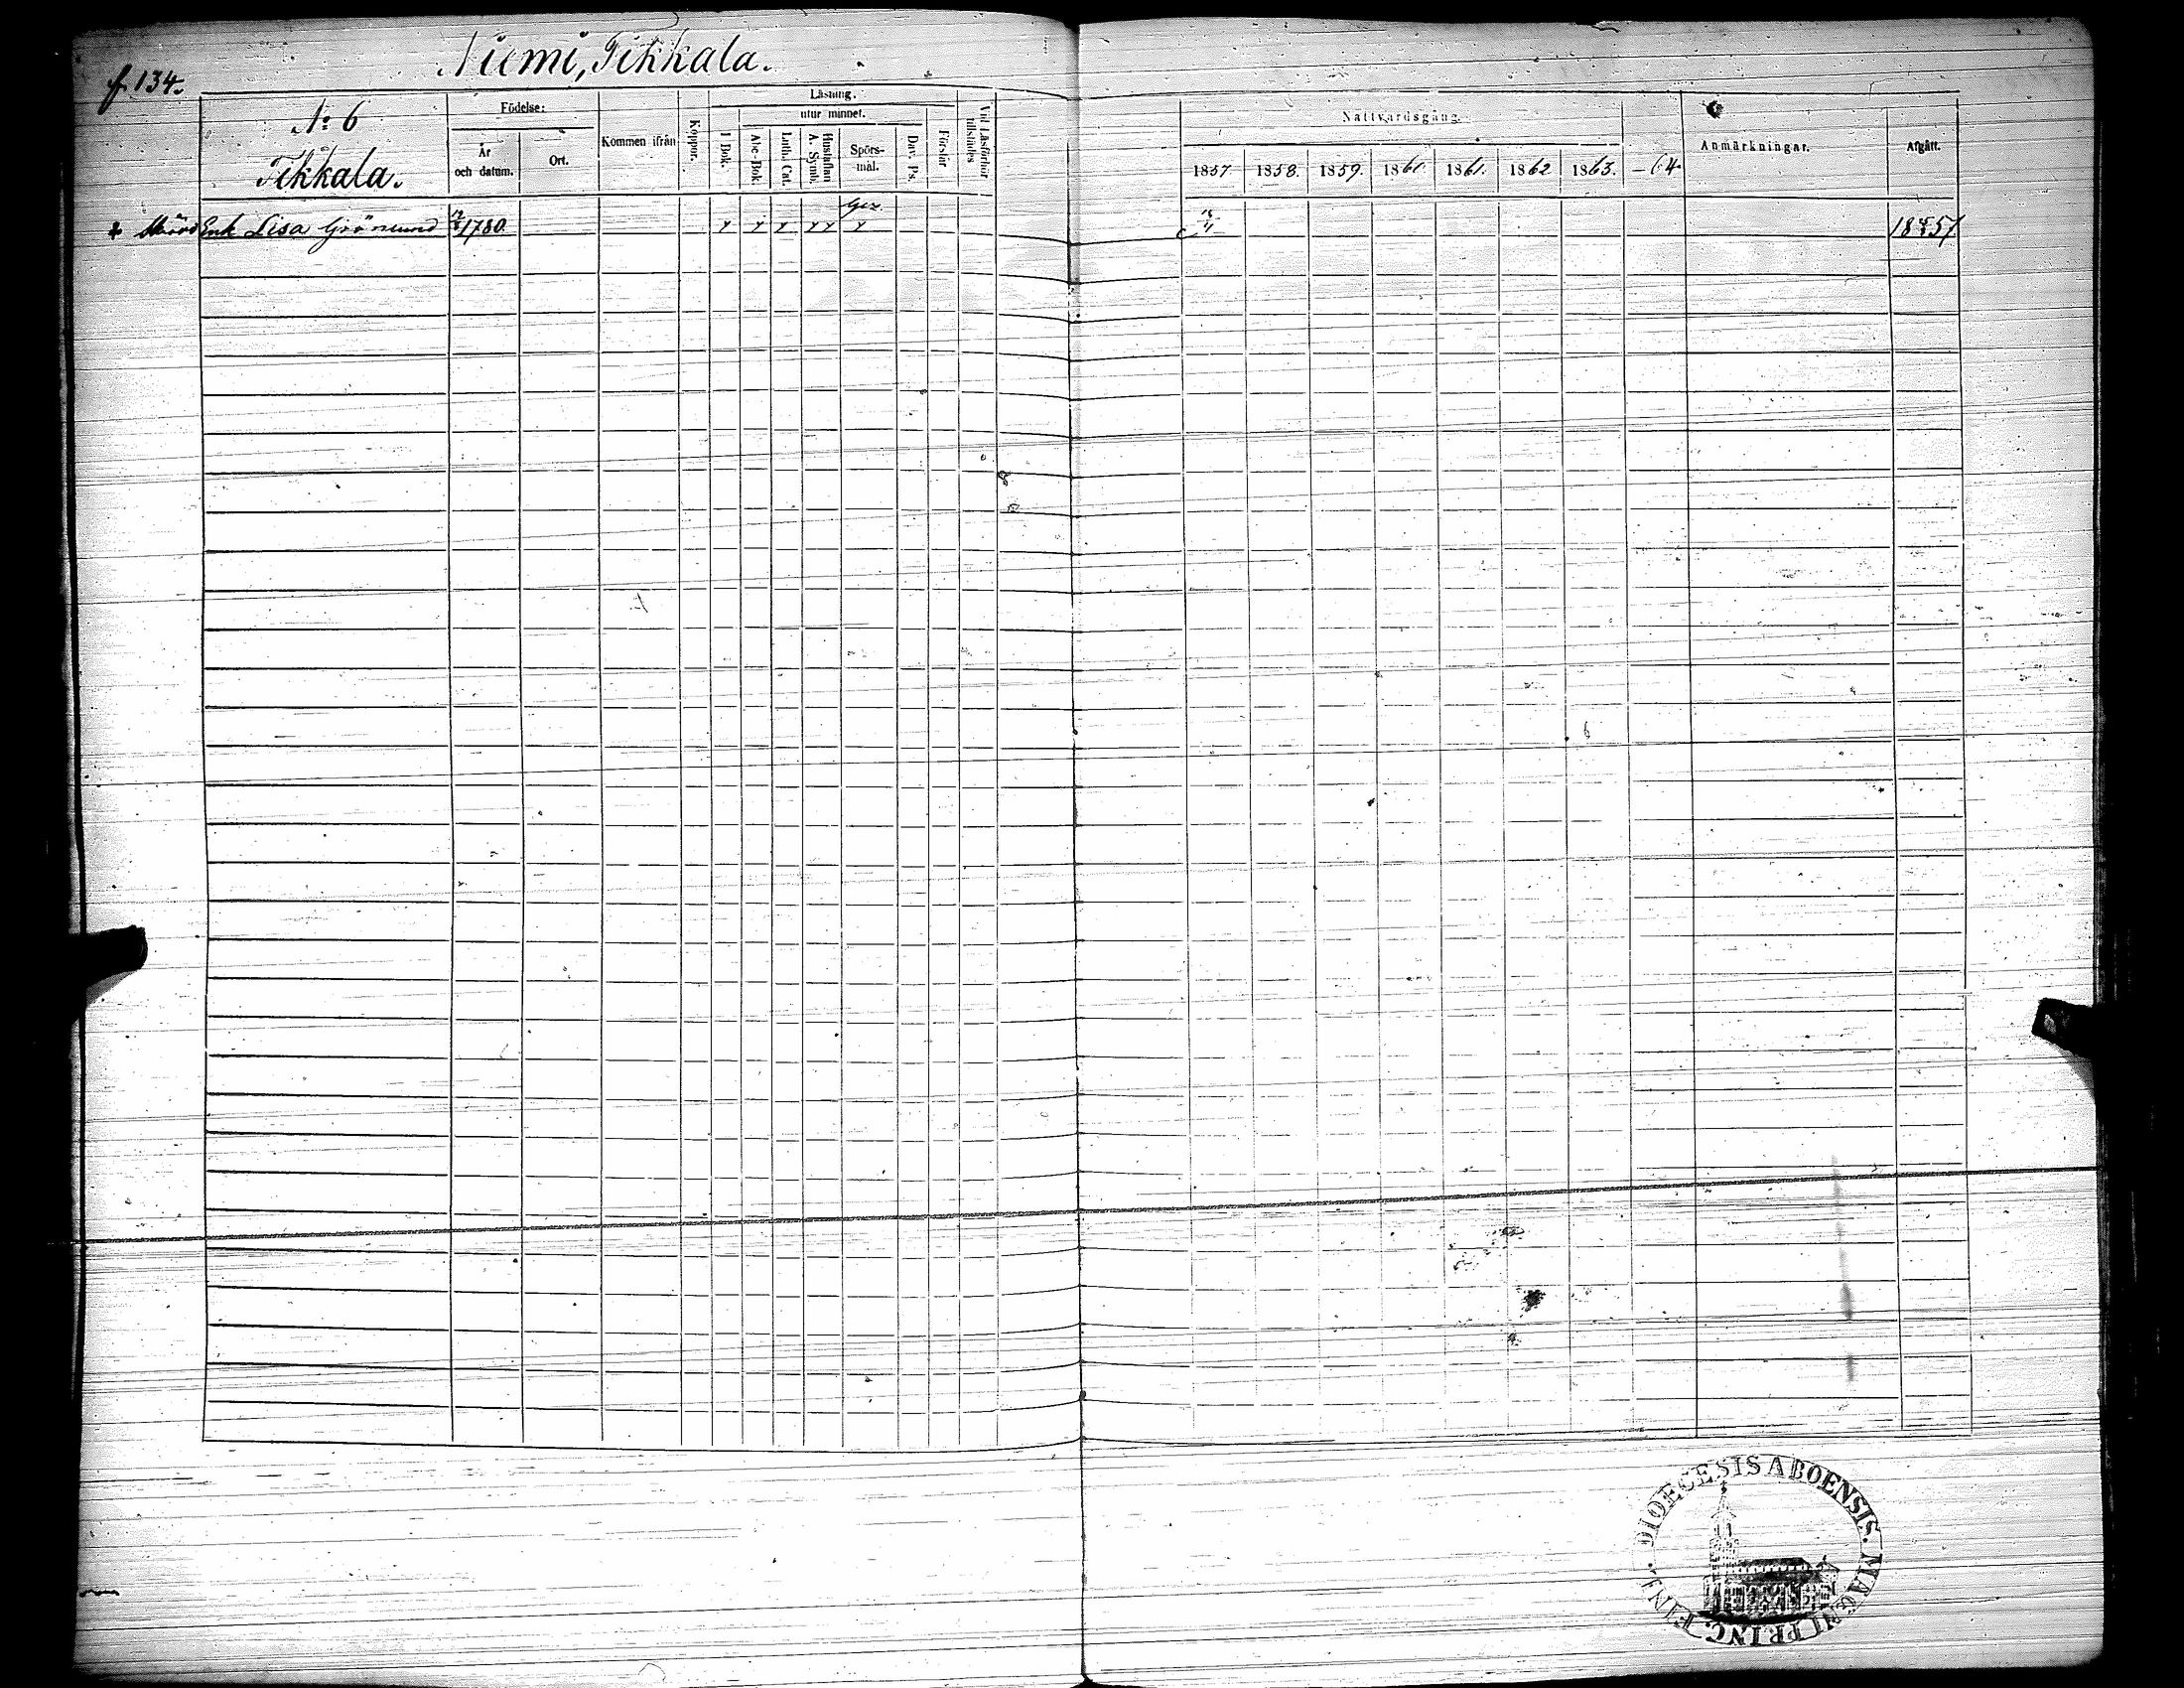 f. 134.
Niemi, Tikkala.
No: 6
Tikkala.
Födelse:
År och datum.
Ort.
Kommen ifrån
Koppor.
Läsning.
utur minnet.
I Bok.
Abc-Bok.
Luth. Cat.
Hustaflan A. Symb.
Spörsmål.
Dav. Ps.
Förstår
Vid Läsförhör tillstädes
Nattvardsgång.
1857. 1858. 1859. 1860. 1861. 1862 1863. -64
Anmärkningar.
Afgått.
Enk Lisa Grönlund 1780. 1857
DIOECESIS ABOENSIS. MAGNI PRINC. FINL.